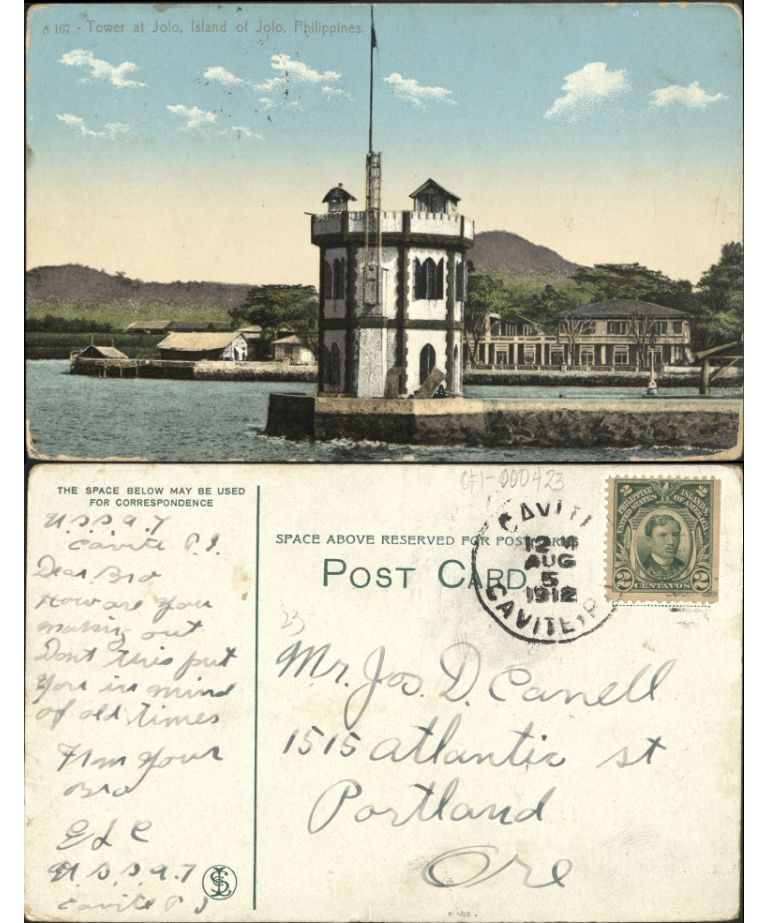 167 - Tower at Jolo, Island of Jolo, Philippines.
THE SPACE BELOW MAY BE USED
FOR CORRESPONDENCE
U.S.S. A.7
Cavite P.I.
Dear Bro
How are you
making out
Dont this put
you in mind
of old times
From Your
Bro
E L C
U.S.S A.7
Cavite P I
CF1-000423
SPACE ABOVE RESERVED FOR POSTMARKS
POST CARD
CAVITE
12 M
AUG
5
1912
CAVITE, P
PHILIPPINE ISLANDS
UNITED STATES OF AMERICA
2 CENTAVOS 2
23
Mr. Jos. D. Canell
1515 Atlantic st
Portland
Ore